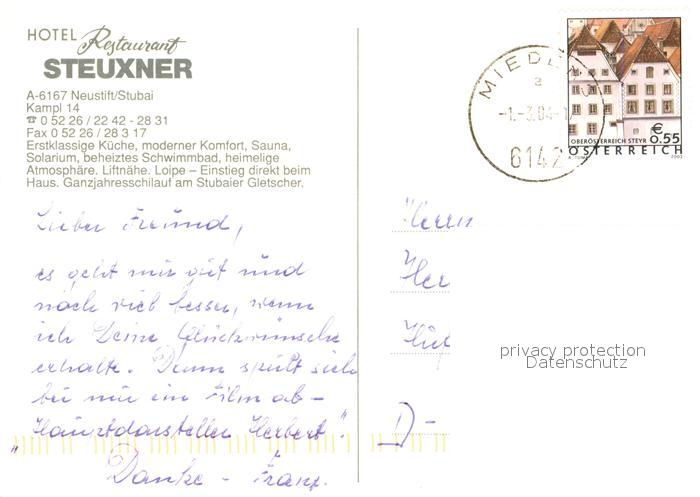 HOTEL Restaurant
STEUXNER
A-6167 Neustift/Stubai
Kampl 14
☎ 0 52 26 / 22 42 - 28 31
Fax 0 52 26 / 28 3 17
Erstklassige Küche, moderner Komfort, Sauna,
Solarium, beheiztes Schwimmbad, heimelige
Atmosphäre. Liftnähe. Loipe – Einstieg direkt beim
Haus. Ganzjahresschilauf am Stubaier Gletscher.
MIEDERS
a
-1.-3.04-17
6142
€ 0.55
OBERÖSTERREICH STEYR
ÖSTERREICH
2003
Lieber Freund,
es geht mir gut und
noch viel besser, wenn
ich Deine Glückwünsche
erhalte. Dann spult sich
bei mir ein Film ab –
Hauptdarsteller Herbert".
"Danke - Franz.
Herrn
Her
D-
privacy protection
Datenschutz